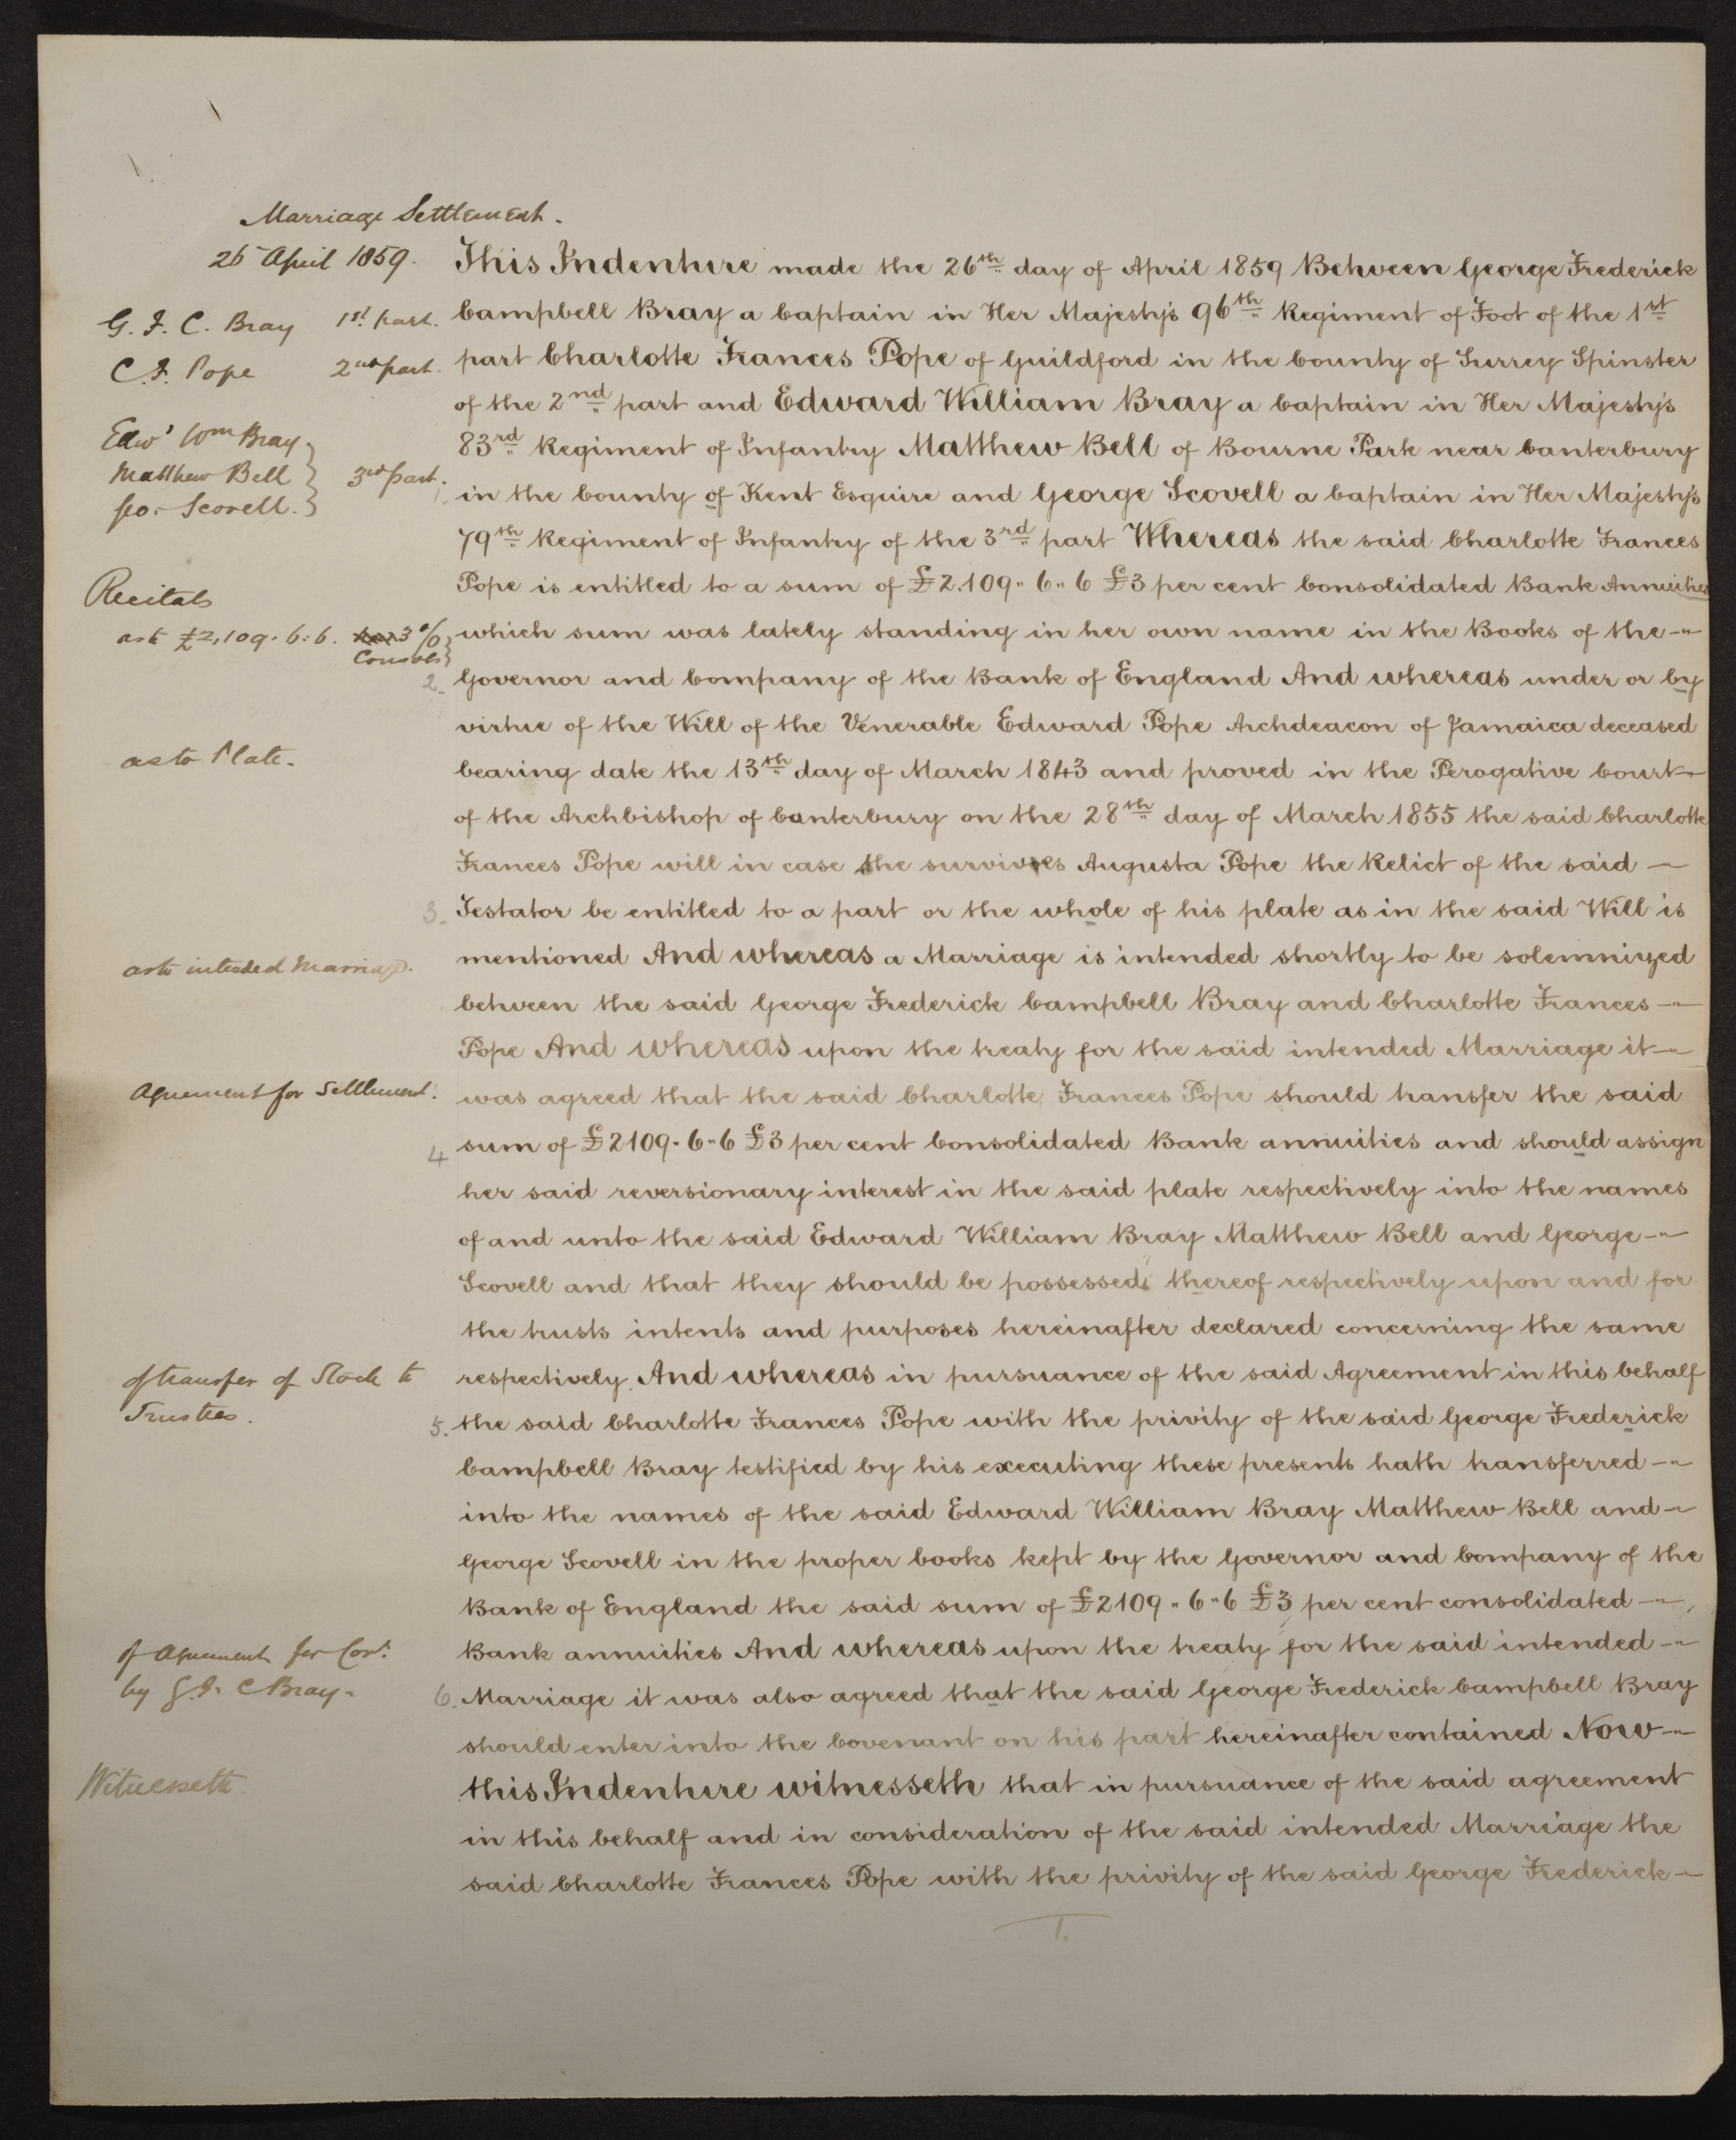 Marriage Settlement.
26 April 1859.
This Indenture made the 26th day of April 1859 Between George Frederick
G. F. C. Bray 1st part.
Campbell Bray a Captain in Her Majesty's 96th Regiment of Foot of the 1st
C. F. Pope 2nd part.
part Charlotte Frances Pope of Guildford in the County of Surrey Spinster
of the 2nd part and Edward William Bray a Captain in Her Majesty's
Edwd Wm Bray
83rd Regiment of Infantry Matthew Bell of Bourne Park near Canterbury
Matthew Bell 3rd part.
in the County of Kent Esquire and George Scovell a Captain in Her Majesty's
Geo. Scovell.
79th Regiment of Infantry of the 3rd part Whereas the said Charlotte Frances
Recitals
Pope is entitled to a sum of £2.109-6-6 £3 per cent Consolidated Bank Annuities
as to £2,109.6.6. 3%
Consols
which sum was lately standing in her own name in the Books of the
2. Governor and Company of the Bank of England And whereas under or by
virtue of the Will of the Venerable Edward Pope Archdeacon of Jamaica deceased
as to Plate.
bearing date the 13th day of March 1843 and proved in the Perogative Court
of the Archbishop of Canterbury on the 28th day of March 1855 the said Charlotte
Frances Pope will in case she survives Augusta Pope the Relict of the said
3. Testator be entitled to a part or the whole of his plate as in the said Will is
as to intended Marriage.
mentioned And whereas a Marriage is intended shortly to be solemnized
between the said George Frederick Campbell Bray and Charlotte Frances
Pope And whereas upon the treaty for the said intended Marriage it
Agreement for Settlement.
was agreed that the said Charlotte Frances Pope should transfer the said
4 sum of £2109-6-6 £3 per cent Consolidated Bank annuities and should assign
her said reversionary interest in the said plate respectively into the names
of and unto the said Edward William Bray Matthew Bell and George
Scovell and that they should be possessed thereof respectively upon and for
the trusts intents and purposes hereinafter declared concerning the same
of transfer of Stock to
Trustees.
respectively. And whereas in pursuance of the said Agreement in this behalf
5. the said Charlotte Frances Pope with the privity of the said George Frederick
Campbell Bray testified by his executing these presents hath transferred
into the names of the said Edward William Bray Matthew Bell and
George Scovell in the proper books kept by the Governor and Company of the
Bank of England the said sum of £2109-6-6 £3 per cent consolidated
of Agreement for Covt.
by G. F. C Bray.
Bank annuities And whereas upon the treaty for the said intended
6. Marriage it was also agreed that the said George Frederick Campbell Bray
should enter into the Covenant on his part hereinafter contained Now
Witnesseth
this Indenture witnesseth that in pursuance of the said agreement
in this behalf and in consideration of the said intended Marriage the
said Charlotte Frances Pope with the privity of the said George Frederick
1.